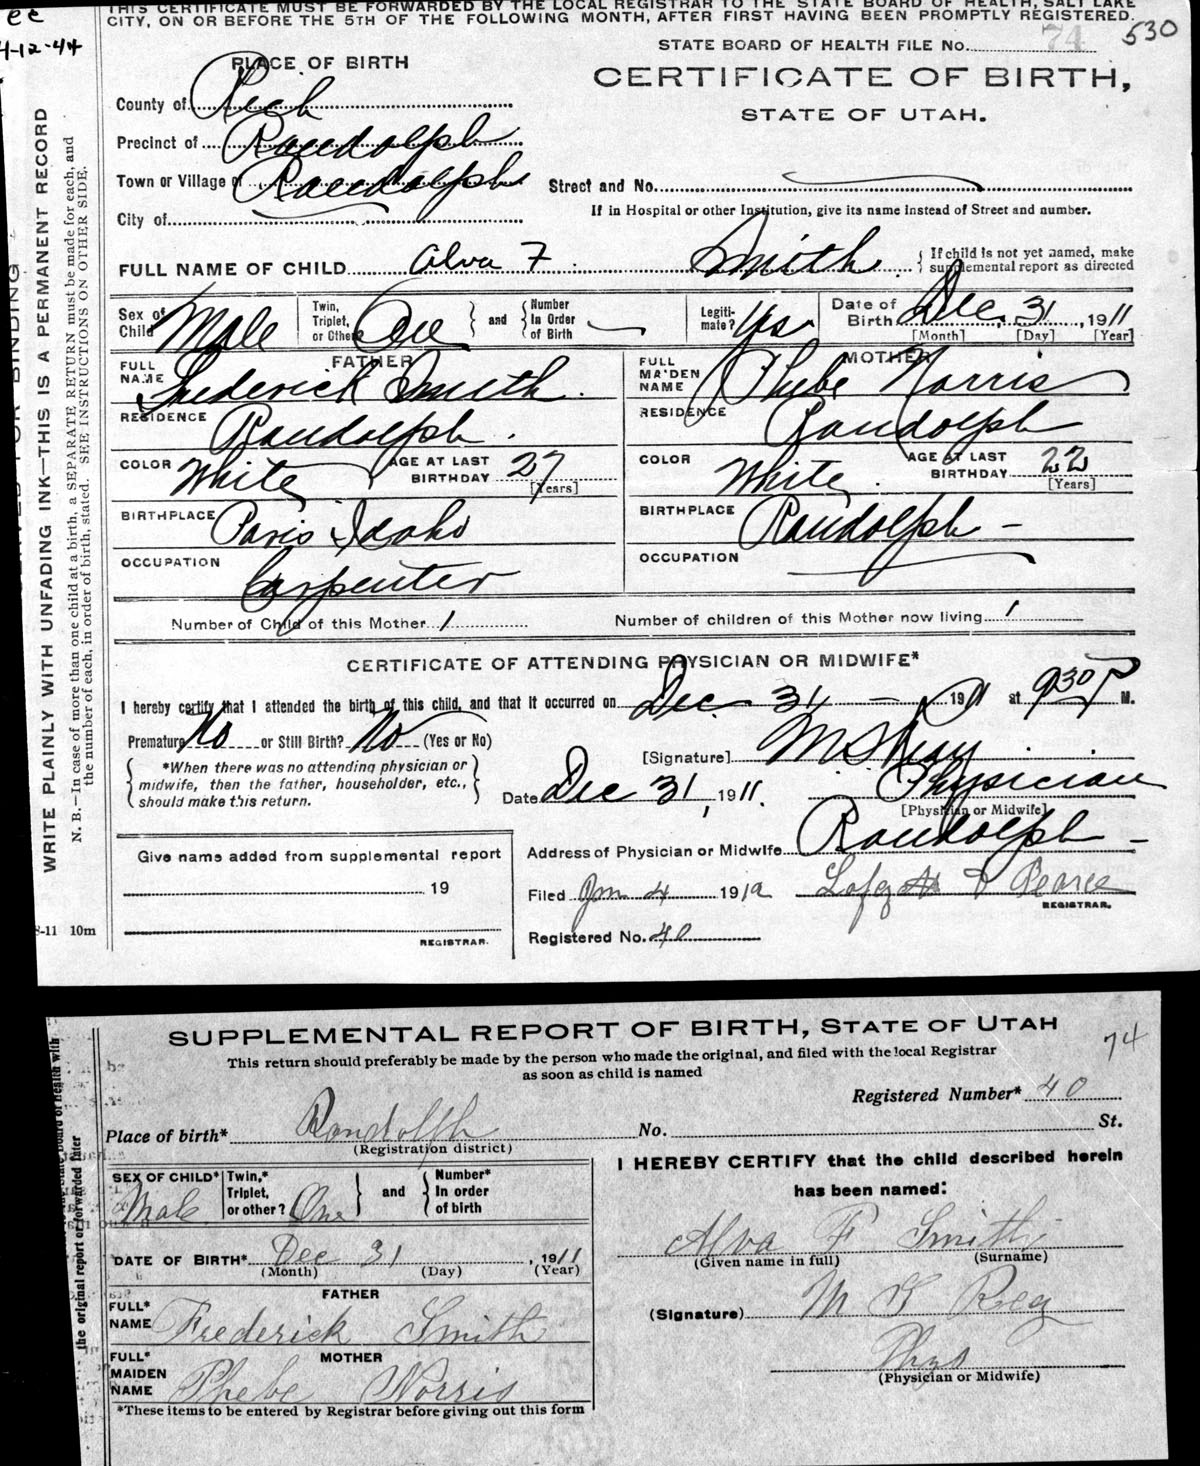 THIS CERTIFICATE MUST BE FORWARDED BY THE LOCAL REGISTRAR TO THE STATE BOARD OF HEALTH, SALT LAKE
CITY, ON OR BEFORE THE 5TH OF THE FOLLOWING MONTH, AFTER FIRST HAVING BEEN PROMPTLY REGISTERED.
4-12-44
530
STATE BOARD OF HEALTH FILE No. 74
PLACE OF BIRTH
CERTIFICATE OF BIRTH,
STATE OF UTAH.
County of Rich
Precinct of Randolph
Town or Village of Randolph
Street and No.
City of
If in Hospital or other Institution, give its name instead of Street and number.
FULL NAME OF CHILD Alva F Smith { If child is not yet named, make supplemental report as directed
Sex of Child Male
Twin, Triplet, or Other? One } and { Number In Order of Birth
Legiti-mate? Yes
Date of Birth Dec. 31, 1911
[Month] [Day] [Year]
FATHER
MOTHER
FULL NAME Frederick Smith.
FULL MAIDEN NAME Phebe Norris
RESIDENCE Randolph.
RESIDENCE Randolph
COLOR White AGE AT LAST BIRTHDAY 27 [Years]
COLOR White AGE AT LAST BIRTHDAY 22 [Years]
BIRTHPLACE Paris Idaho
BIRTHPLACE Randolph -
OCCUPATION Carpenter
OCCUPATION
Number of Child of this Mother 1 Number of children of this Mother now living 1
CERTIFICATE OF ATTENDING PHYSICIAN OR MIDWIFE*
I hereby certify that I attended the birth of this child, and that it occurred on Dec. 31 1911 at 930 P M.
Premature No or Still Birth? No (Yes or No)
[Signature]
*When there was no attending physician or midwife, then the father, householder, etc., should make this return.
Date Dec 31, 1911. Physician
[Physician or Midwife]
Address of Physician or Midwife Randolph -
Give name added from supplemental report
19
REGISTRAR.
Filed Jan 4 1912 Pearce
REGISTRAR.
Registered No. 40
8-11 10m
WRITE PLAINLY WITH UNFADING INK—THIS IS A PERMANENT RECORD
N. B.—In case of more than one child at a birth, a SEPARATE RETURN must be made for each, and
the number of each, in order of birth, stated. SEE INSTRUCTIONS ON OTHER SIDE.
SUPPLEMENTAL REPORT OF BIRTH, STATE OF UTAH
74
This return should preferably be made by the person who made the original, and filed with the local Registrar
as soon as child is named
Registered Number* 40
Place of birth* Randolph No. St.
(Registration district)
SEX OF CHILD* Male
Twin,* Triplet, or other? One } and { Number* In order of birth
I HEREBY CERTIFY that the child described herein
has been named:
DATE OF BIRTH* Dec 31, 1911
(Month) (Day) (Year)
Alva F Smith
(Given name in full) (Surname)
FATHER
FULL* NAME Frederick Smith
(Signature)
MOTHER
FULL* MAIDEN NAME Phebe Norris
Phys
(Physician or Midwife)
*These items to be entered by Registrar before giving out this form
the original report or forwarded later